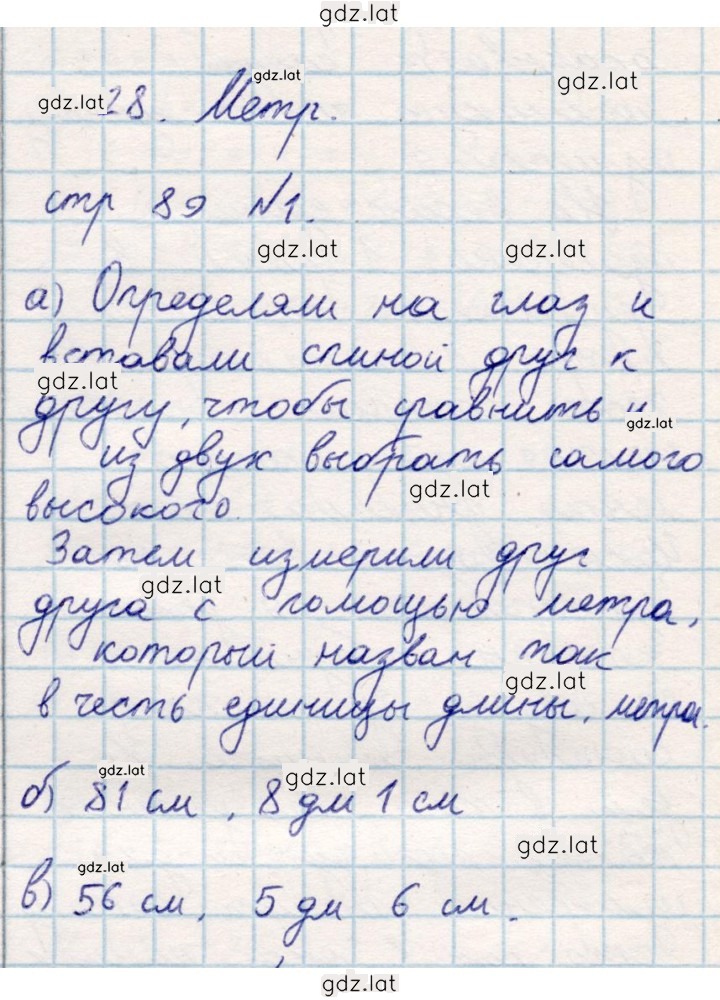 gdz.lat
gdz.lat
gdz.lat
gdz.lat 28. Метр.
стр 89 №1.
gdz.lat gdz.lat
а) Определяли на глаз и
вставали спиной друг к
gdz.lat
другу, чтобы сравнить и
gdz.lat
из двух выбрать самого
gdz.lat
высокого.
Затем измерили друг
gdz.lat
друга с помощью метра,
который назван так
gdz.lat
в честь единицы длины. метра.
gdz.lat gdz.lat
б) 81 см, 8 дм 1 см
gdz.lat
gdz.lat
в) 56 см, 5 дм 6 см.
gdz.lat